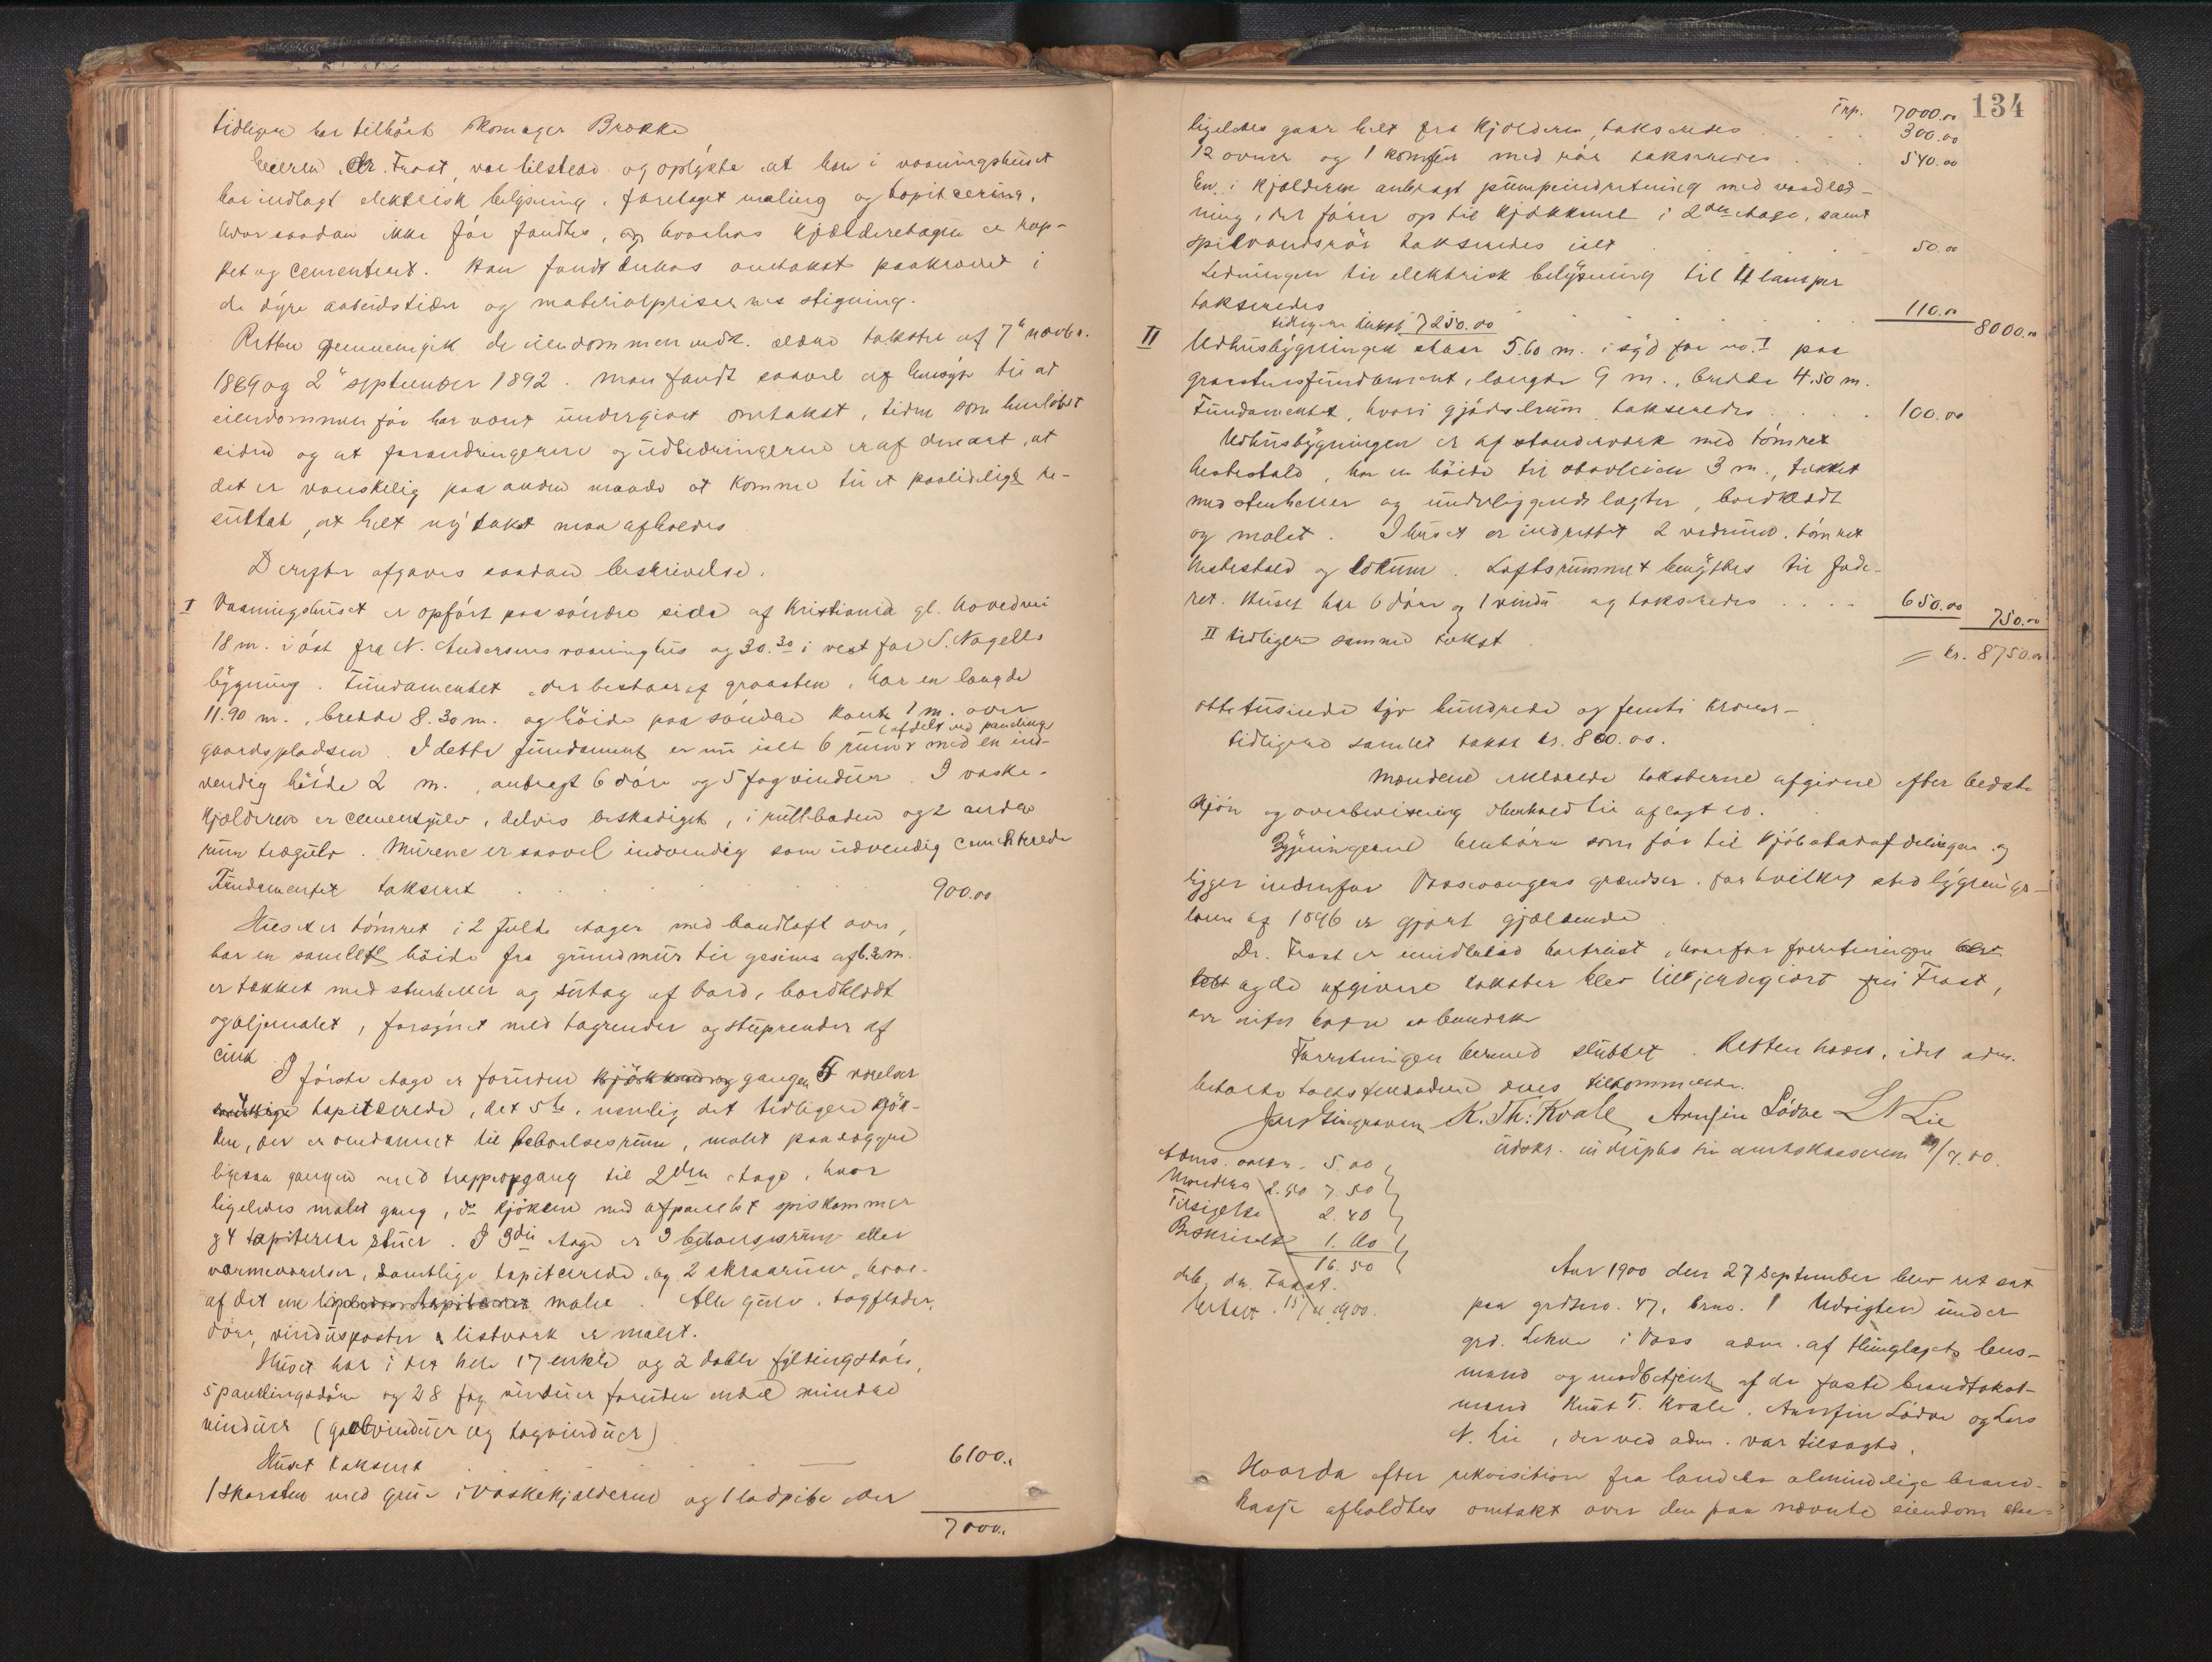 tidligere har tilhørt Skomager Brække
Eieren, Dr. Frost, var tilstede og oplyste at han i vaaningshuset
har indlagt elektrisk belysning, foretaget maling og tapitsering,
hvor saadan ikke før fandtes, og hvorhos kjælderetagen er rap-
pet og cementeret. Han fandt derhos omtakst paakrævet i
de dyre arbeidstider og materialprisernes stigning.
Retten gjennemgik de eiendommen vedk. ældre takster af 7de novbr.
1889 og 2den september 1892. Man fandt saavel af hensyn til at
eiendommen før har været undergivet omtakst, tiden som henløbet
siden og at forandringerne og udbedringerne er af den art, at
det er vanskelig paa anden maade at komme til et paalideligt re-
sultat, at helt ny takst maa afholdes
Derefter afgaves saadan beskrivelse:
I Vaaningshuset er opført paa søndre side af Kristiania gl. hovedvei
18 m. i øst fra N. Andersens vaaningshus og 30.30 i vest for S. Nagells
bygning. Fundamentet, der bestaar af graasten, har en længde
11.90 m., bredde 8.30 m. og høide paa søndre kant 1 m. over
(afdelt ved paneling
gaardspladsen. I dette fundament er nu ialt 6 rum med en ind-
vendig høide 2 m., anbragt 6 døre og 5 fag vinduer. I vaske-
kjælderen er cementgulv, delvis beskadiget, i rullboden og 2 andre
rum trægulv. Murene er saavel indvendig som udvendig cementerede
Fundamentet takseret . . . . . 900.00
Huset er tømret i 2 fulde etager med bandloft over,
har en samlet høide fra grundmur til gesims af 6.2 m.
er tækket med stenheller og sutag af bord, bordklædt
og oljemalet, forsynet med tagrender og stuprender af
cink
I første etage er foruden kjøkken og gangen 5 værelser
samtlige tapitserede, det 5te, nemlig det tidligere kjøk-
ken, der er omdannet til beboelsesrum, malet paa væggene
ligesaa gangen med trappeopgang til 2den etage, hvor
ligeledes malet gang, do kjøkken med afpanelet spiskammer
og 4 tapitserede stuer. I 3die etage er 3 beboelsesrum eller
varmeværelser, samtlige tapitserede, og 2 skraarum, hvor-
af det ene ligeledes tapitseret malet. Alle gulv, tagflader,
døre, vinduspaster & listværk er malet.
Huset har i det hele 17 enkle og 2 doble fyldingsdøre,
5 panelingsdøre og 28 fag vinduer foruden endel mindre
vinduer (gavlvinduer og tagvinduer)
Huset takseret . . . . 6100.
1 skorsten med grue i vaskekjælderen og 1 ladpibe der
7000.
134
Trp. 7000.00
ligeledes gaar helt fra kjælderen, takseredes . . . 300.00
12 ovner og 1 komfur med rør takseredes . . . 540.00
En i kjælderen anbragt pumpeindretning med vandled-
ning, der fører op til kjøkkenet i 2den etage, samt
spilvandsrør takseredes ialt . . . 50.00
Ledningen til elektrisk belysning til 11 lamper
takseredes . . . 110.00 8000.00
tidligere takst 7250.00
II Udhusbygningen staar 5.60 m. i syd for no. I paa
graastensfundament, længde 9 m., bredde 4.50 m.
Fundamentet, hvori gjødselrum, takseredes . . . 100.00
Udhusbygningen er af stenderværk med tømret
hestestald, har en høide til stavleien 3 m., tækket
med stenheller og underliggende lægter, bordklædt
og malet. I huset er indrettet 2 vedrum, tømret
hestestald og lokum. Loftsrummet benyttes til fode-
ret. Huset har 6 døre og 1 vindu og takseredes . . . 650.00 750.00
II tidligere samme takst . = kr. 8750.00
otte tusinde syv hundrede og femti kroner –
tidligere samlet takst kr. 8000.00.
Mændene erklærede taksterne afgivne efter bedste
skjøn og overbevisning i henhold til aflagt ed.
Bygningerne henhører som før til kjøbstadafdelingen og
ligger indenfor Vossevangens grændser, for hvilket sted bygnings-
loven af 1896 er gjort gjældende
Dr. Frost er imidlertid bortreist, hvorfor forretningen blev
og de afgivne takster blev tilkjendegivet fru Frost,
Forretningen hermed sluttet. Retten hævet, idet adm.
betalte takstmændene deres tilkommende.
K. Th: Kvale Arnfin Lødve L N Lie
Udskr. in duplo til amtskassereren /7.00.
Adms. 5.00
Mændene 2.50 7.50
Tilsigelse 2.40
Beskrivelse 1.60
16.50
deb. dr. Frost.
betalt 15/11 1900.
Aar 1900 den 27 september blev ret sat
paa grdsno. 47, brno. 1 Udsigten under
grd. Lekve i Voss adm. af thinglagets lens-
mand og medbetjent af de faste brandtakst-
mænd Knut T. Kvale, Arnfin Lødve og Lars
N. Lie, der ved adm. var tilsagte.
Hvorda efter rekvisition fra landets almindelige brand-
kasse afholdtes omtakt over den paa nævnte eiendom